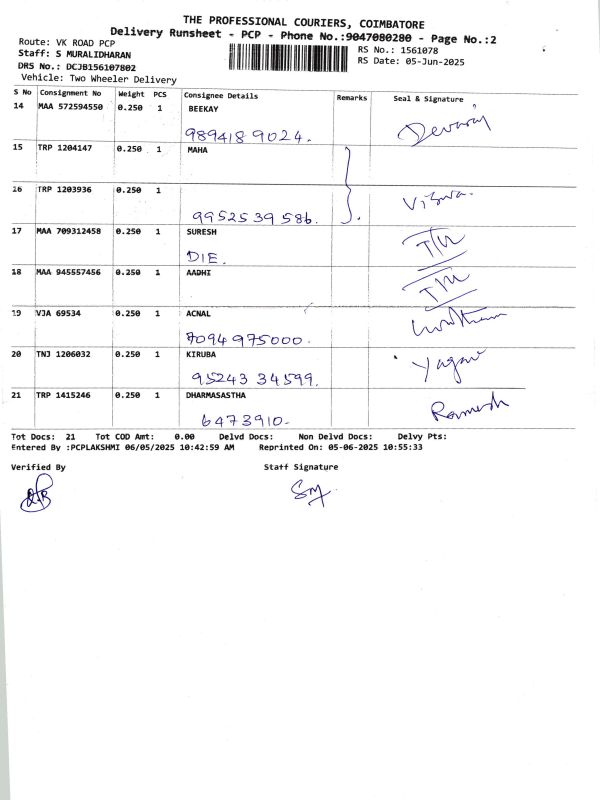 THE PROFESSIONAL COURIERS, COIMBATORE
Delivery Runsheet - PCP - Phone No.:9047080280 - Page No.:2
Route: VK ROAD PCP
RS No.: 1561078
Staff: S MURALIDHARAN
RS Date: 05-Jun-2025
DRS No.: DCJB156107802
Vehicle: Two Wheeler Delivery
S No Consignment No Weight PCS Consignee Details Remarks Seal & Signature
14 MAA 572594550 0.250 1 BEEKAY
989418 9024. Devaraj
15 TRP 1204147 0.250 1 MAHA
16 TRP 1203936 0.250 1
9952539586. Viswa.
17 MAA 709312458 0.250 1 SURESH
DIE.
18 MAA 945557456 0.250 1 AADHI
19 VJA 69534 0.250 1 ACNAL
7094 975000.
20 TNJ 1206032 0.250 1 KIRUBA
95243 34599.
21 TRP 1415246 0.250 1 DHARMASASTHA
6473910. Ramesh
Tot Docs: 21 Tot COD Amt: 0.00 Delvd Docs: Non Delvd Docs: Delvy Pts:
Entered By :PCPLAKSHMI 06/05/2025 10:42:59 AM Reprinted On: 05-06-2025 10:55:33
Verified By Staff Signature